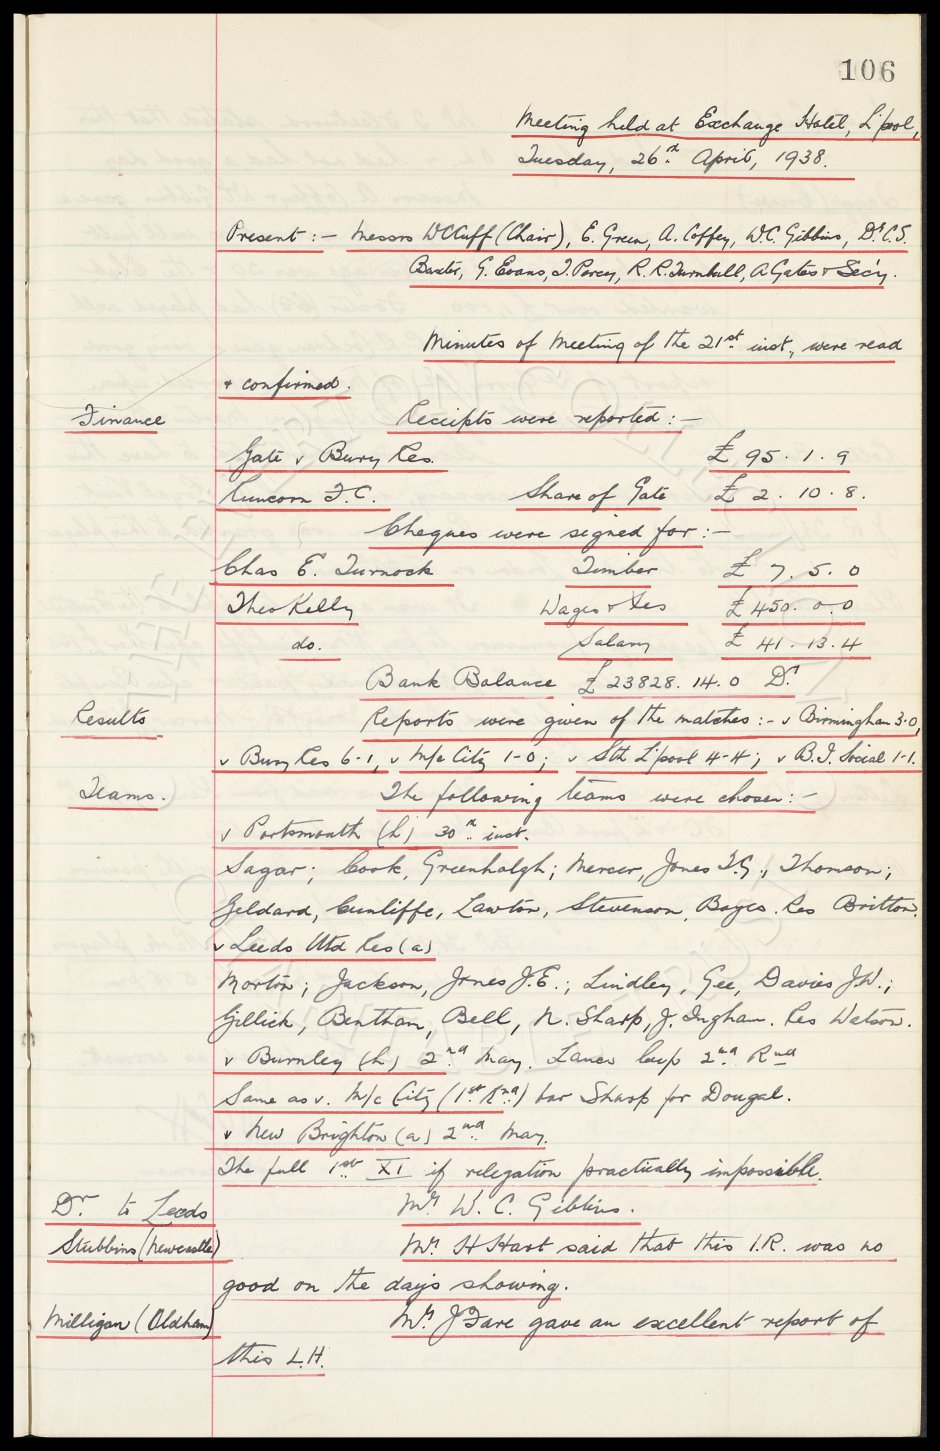 106
Meeting held at Exchange Hotel, L'pool,
Tuesday, 26th April, 1938.
Present :- Messrs W C Cuff (Chair), E. Green, A. Coffey, W.C. Gibbins, Dr C.S.
Baxter, G. Evans, J. Percy, R. R. Turnbull, A Gates & Sec'y.
Minutes of Meeting of the 21st inst., were read
& confirmed.
Finance Receipts were reported :-
Gate v Bury Res. £ 95 . 1 . 9
Runcorn F.C. Share of Gate £ 2 . 10 . 8.
Cheques were signed for :-
Chas E. Turnock Timber £ 7 . 5 . 0
Theo Kelly Wages & Fes £ 450 . 0 . 0
do. Salary £ 41 . 13 . 4
Bank Balance £ 23828 . 14 . 0 Dr
Results Reports were given of the matches :- v Birmingham 3-0,
v Bury Res 6-1, v M/c City 1-0; v Sth L'pool 4-4; v B.I. Social 1-1.
Teams. The following teams were chosen :-
v Portsmouth (h) 30th inst.
Sagar; Cook, Greenhalgh; Mercer, Jones T.G., Thomson;
Geldard, Cunliffe, Lawton, Stevenson, Boyes. Res Britton.
v Leeds Utd Res (a)
Morton; Jackson, Jones J.E.; Lindley, Gee, Davies J.W.;
Gillick, Bentham, Bell, N. Sharp, J. Ingham. Res Watson.
v Burnley (h) 2nd May. Lancs Cup 2nd Rnd
Same as v. M/c City (1st Rnd) bar Sharp for Dougal.
v New Brighton (a) 2nd May.
The full 1st XI if relegation practically impossible.
Dr to Leeds Mr W. C. Gibbins.
Stubbins (Newcastle) Mr H Hart said that this I.R. was no
good on the day's showing.
Milligan (Oldham) Mr J Fare gave an excellent report of
this L.H.